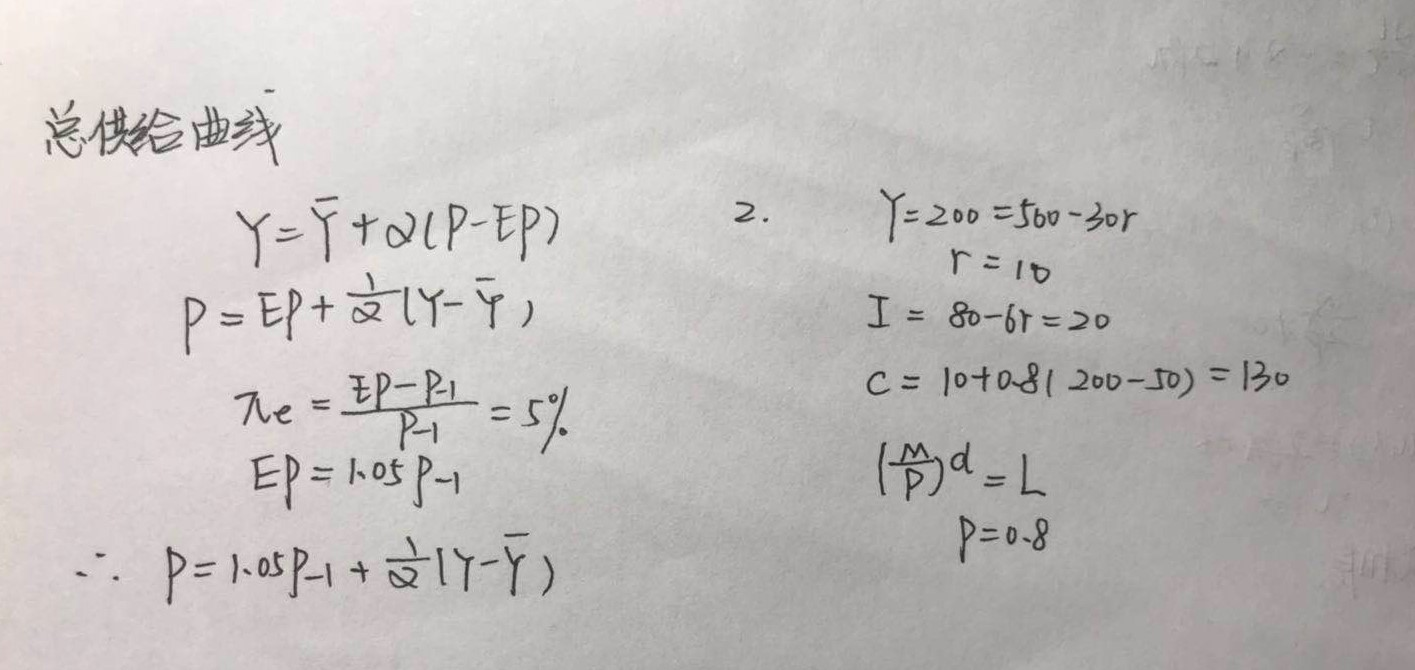 总供给曲线
Y = Ȳ + α(P - EP)
P = EP + 1/α (Y - Ȳ)
πe = (EP - P-1)/P-1 = 5%
EP = 1.05 P-1
∴ P = 1.05P-1 + 1/α (Y - Ȳ)
2. Y = 200 = 500 - 30r
r = 10
I = 80 - 6r = 20
C = 10 + 0.8( 200 - 50) = 130
(M/P)d = L
P = 0.8